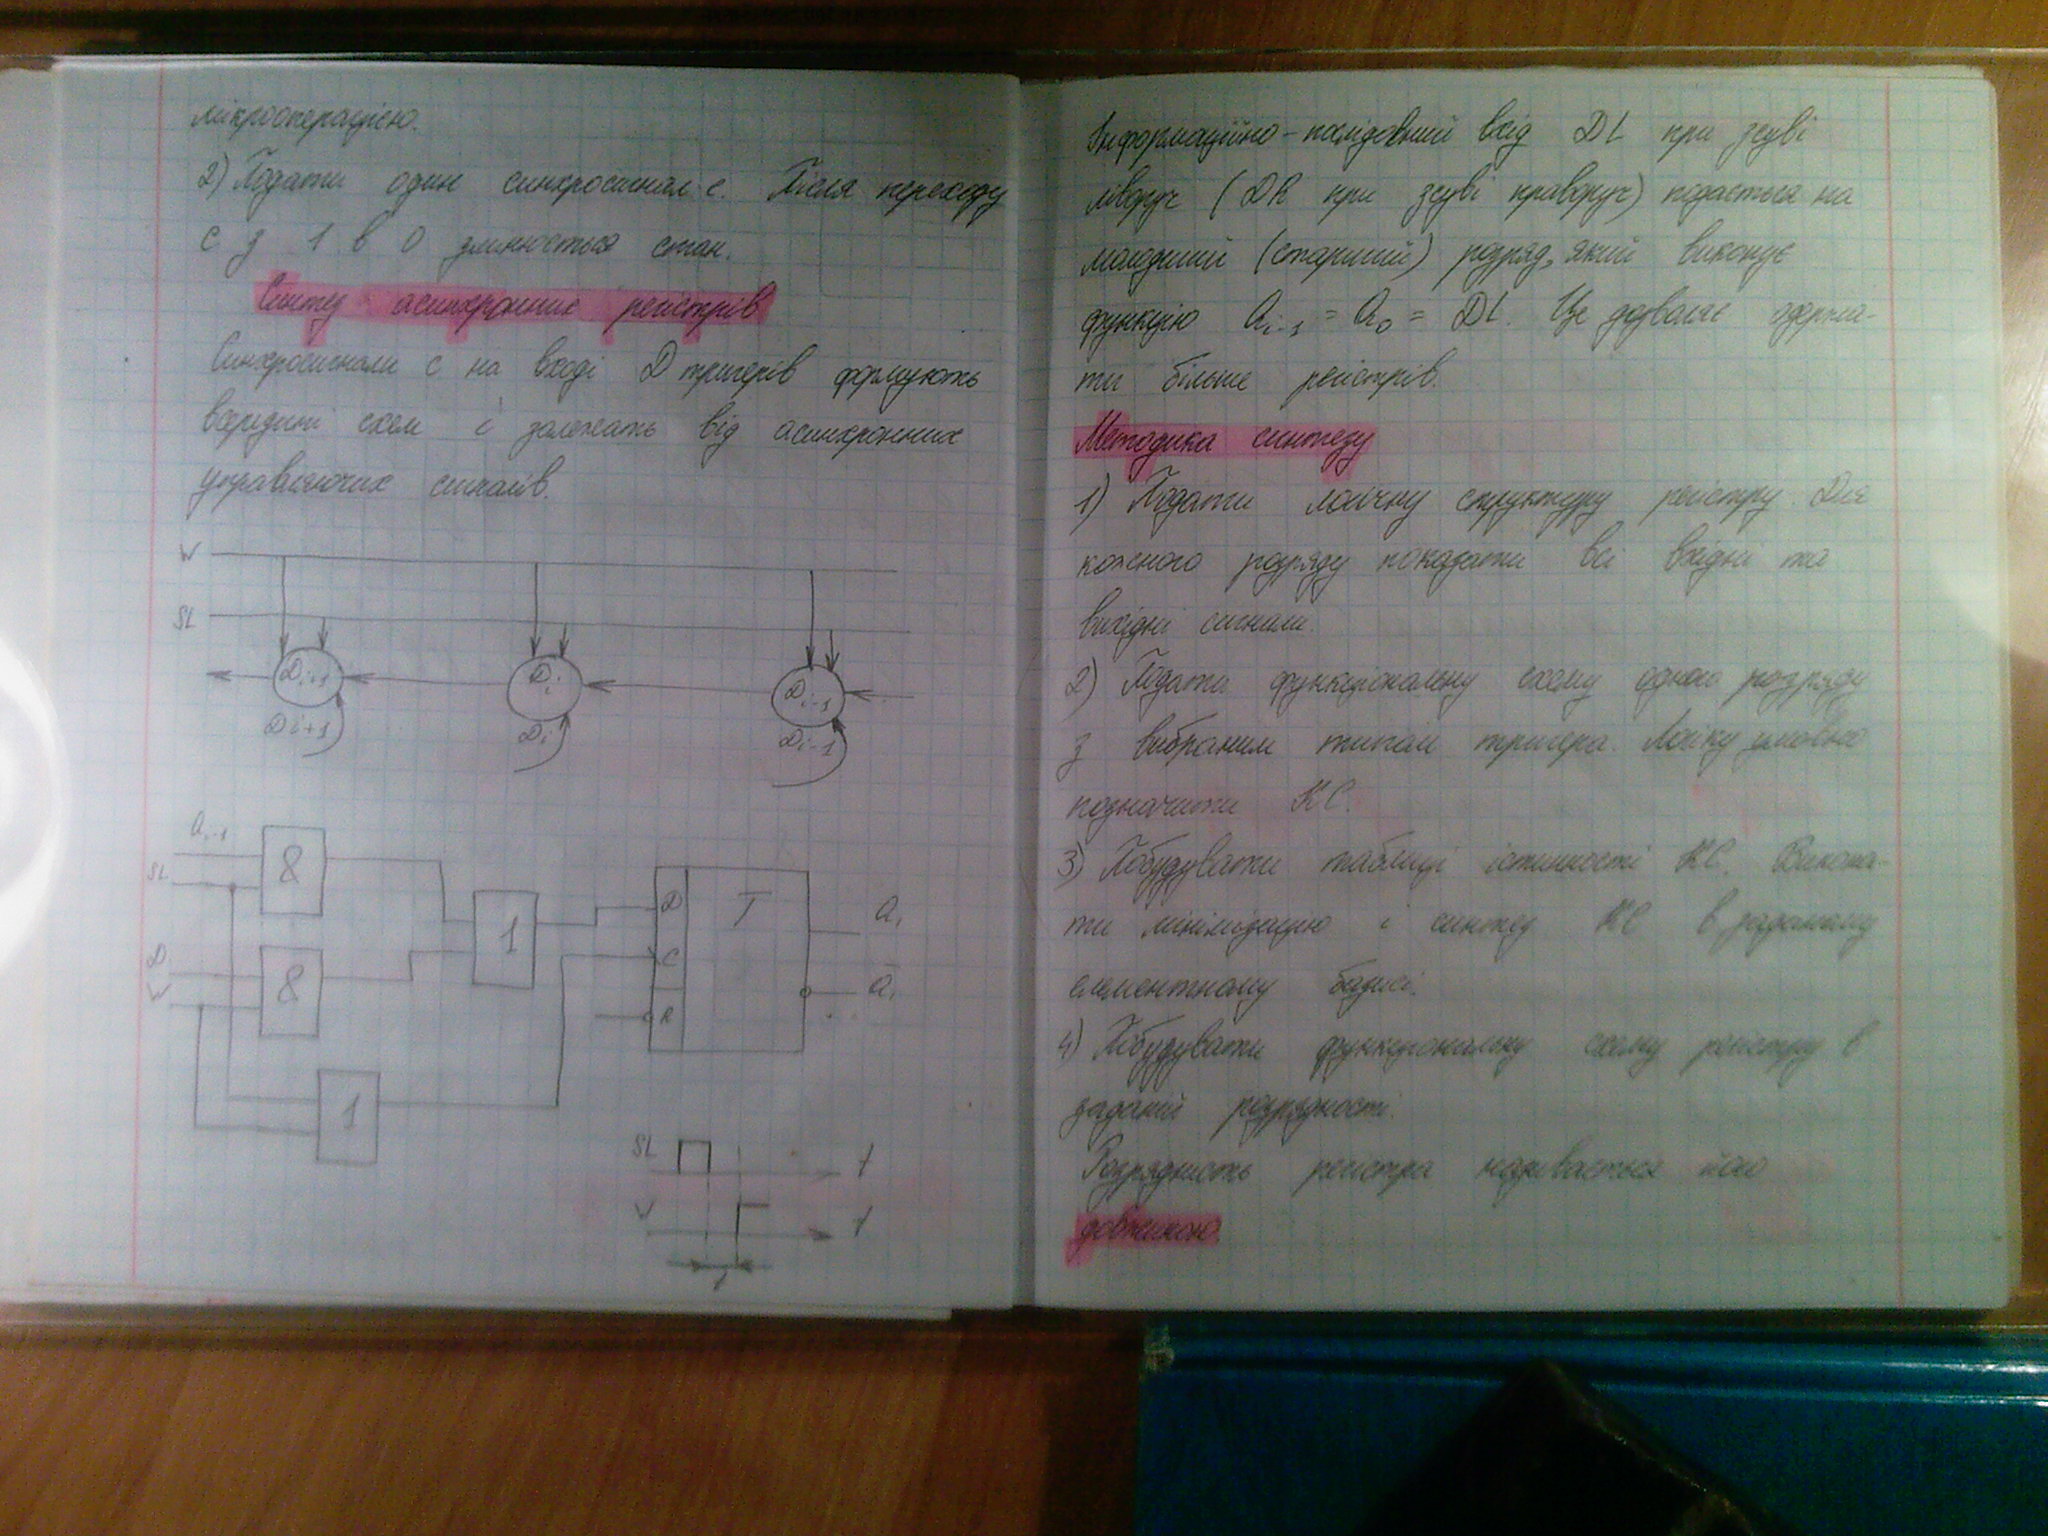 мікрооперацією.
2) Подати один синхросигнал c. Після переходу
c з 1 в 0 змінюється стан.
Синтез асинхронних регістрів
Синхросигнали c на вході D тригерів формують
всередині схем і залежать від асинхронних
управляючих сигналів.
W
SL
Di+1 Di Di-1
Di+1 Di Di-1
ai-1
SL
&
D
W
&
1
1
D
C
R
T
ai
ai
SL t
W t
Інформаційно-послідовний вхід DL при зсуві
ліворуч (DR при зсуві праворуч) подається на
молодший (старший) розряд, який виконує
функцію ai-1 = a0 = DL. Це дозволяє одержа-
ти більше регістрів.
Методика синтезу
1) Подати логічну структуру регістру. Для
кожного розряду показати всі вхідні та
вихідні сигнали.
2) Подати функціональну схему одного розряду
з вибраним типом тригера. Логіку умовно
позначити КС.
3) Побудувати таблиці істинності КС. Викона-
ти мінімізацію і синтез КС в заданому
елементному базисі.
4) Побудувати функціональну схему регістру в
заданій розрядності.
Розрядність регістра називається його
довжиною.